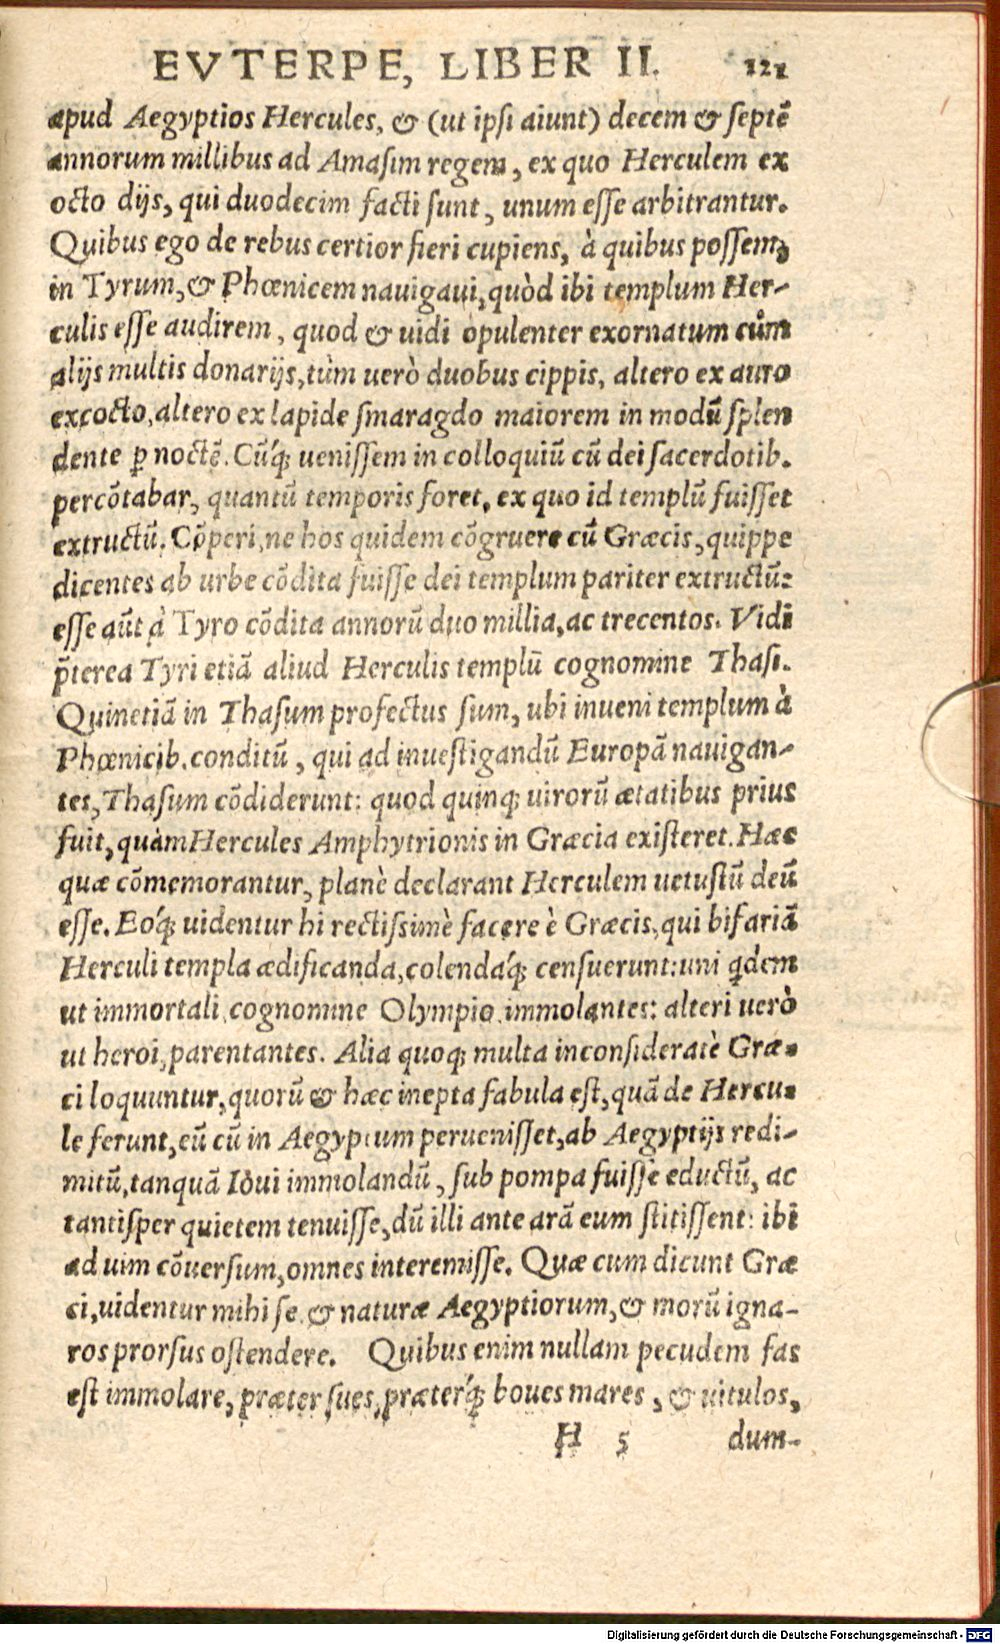 EVTERPE, LIBER II. 121
apud Aegyptios Hercules, & (ut ipſi aiunt) decem & ſeptē
annorum millibus ad Amaſim regem, ex quo Herculem ex
octo dijs, qui duodecim facti ſunt, unum eſſe arbitrantur.
Quibus ego de rebus certior fieri cupiens, à quibus poſſem,
in Tyrum, & Phœnicem nauigaui, quòd ibi templum Her-
culis eſſe audirem, quod & uidi opulenter exornatum cùm
alijs multis donarijs, tùm uerò duobus cippis, altero ex auro
excocto, altero ex lapide ſmaragdo maiorem in modū ſplen
dente ꝑ noctē. Cū́q; ueniſſem in colloquiū cū dei ſacerdotib.
percōtabar, quantū temporis foret, ex quo id templū fuiſſet
extructū. Cōperi, ne hos quidem cōgruere cū Græcis, quippe
dicentes ab urbe cōdita fuiſſe dei templum pariter extructū:
eſſe aūt à Tyro cōdita annorū duo millia, ac trecentos. Vidi
p̄terea Tyri etiā aliud Herculis templū cognomine Thaſi.
Quinetiā in Thaſum profectus ſum, ubi inueni templum à
Phœnicib. conditū, qui ad inueſtigandū Europā nauigan-
tes, Thaſum cōdiderunt: quod quinq; uirorū ætatibus prius
fuit, quàm Hercules Amphytrionis in Græcia exiſteret. Hæc
quæ cōmemorantur, planè declarant Herculem uetuſtū deū
eſſe. Eóq; uidentur hi rectiſsimè facere è Græcis, qui bifariā
Herculi templa ædificanda, colendáq; cenſuerunt: uni q̄dem
ut immortali, cognomine Olympio, immolantes: alteri uerò
ut heroi, parentantes. Alia quoq; multa inconſideratè Græ-
ci loquuntur, quorū & hæc inepta fabula eſt, quā de Hercu-
le ferunt, eū cū in Aegyptum perueniſſet, ab Aegyptijs redi-
mitū, tanquā Ioui immolandū, ſub pompa fuiſſe eductū, ac
tantiſper quietem tenuiſſe, dū illi ante arā eum ſtitiſſent: ibi
ad uim cōuerſum, omnes interemiſſe. Quæ cum dicunt Græ
ci, uidentur mihi ſe & naturæ Aegyptiorum, & morū igna-
ros prorſus oſtendere. Quibus enim nullam pecudem fas
eſt immolare, præter ſues, præteŕq; boues mares, & uitulos,
H 5 dum-
Digitalisierung gefördert durch die Deutsche Forschungsgemeinschaft - DFG